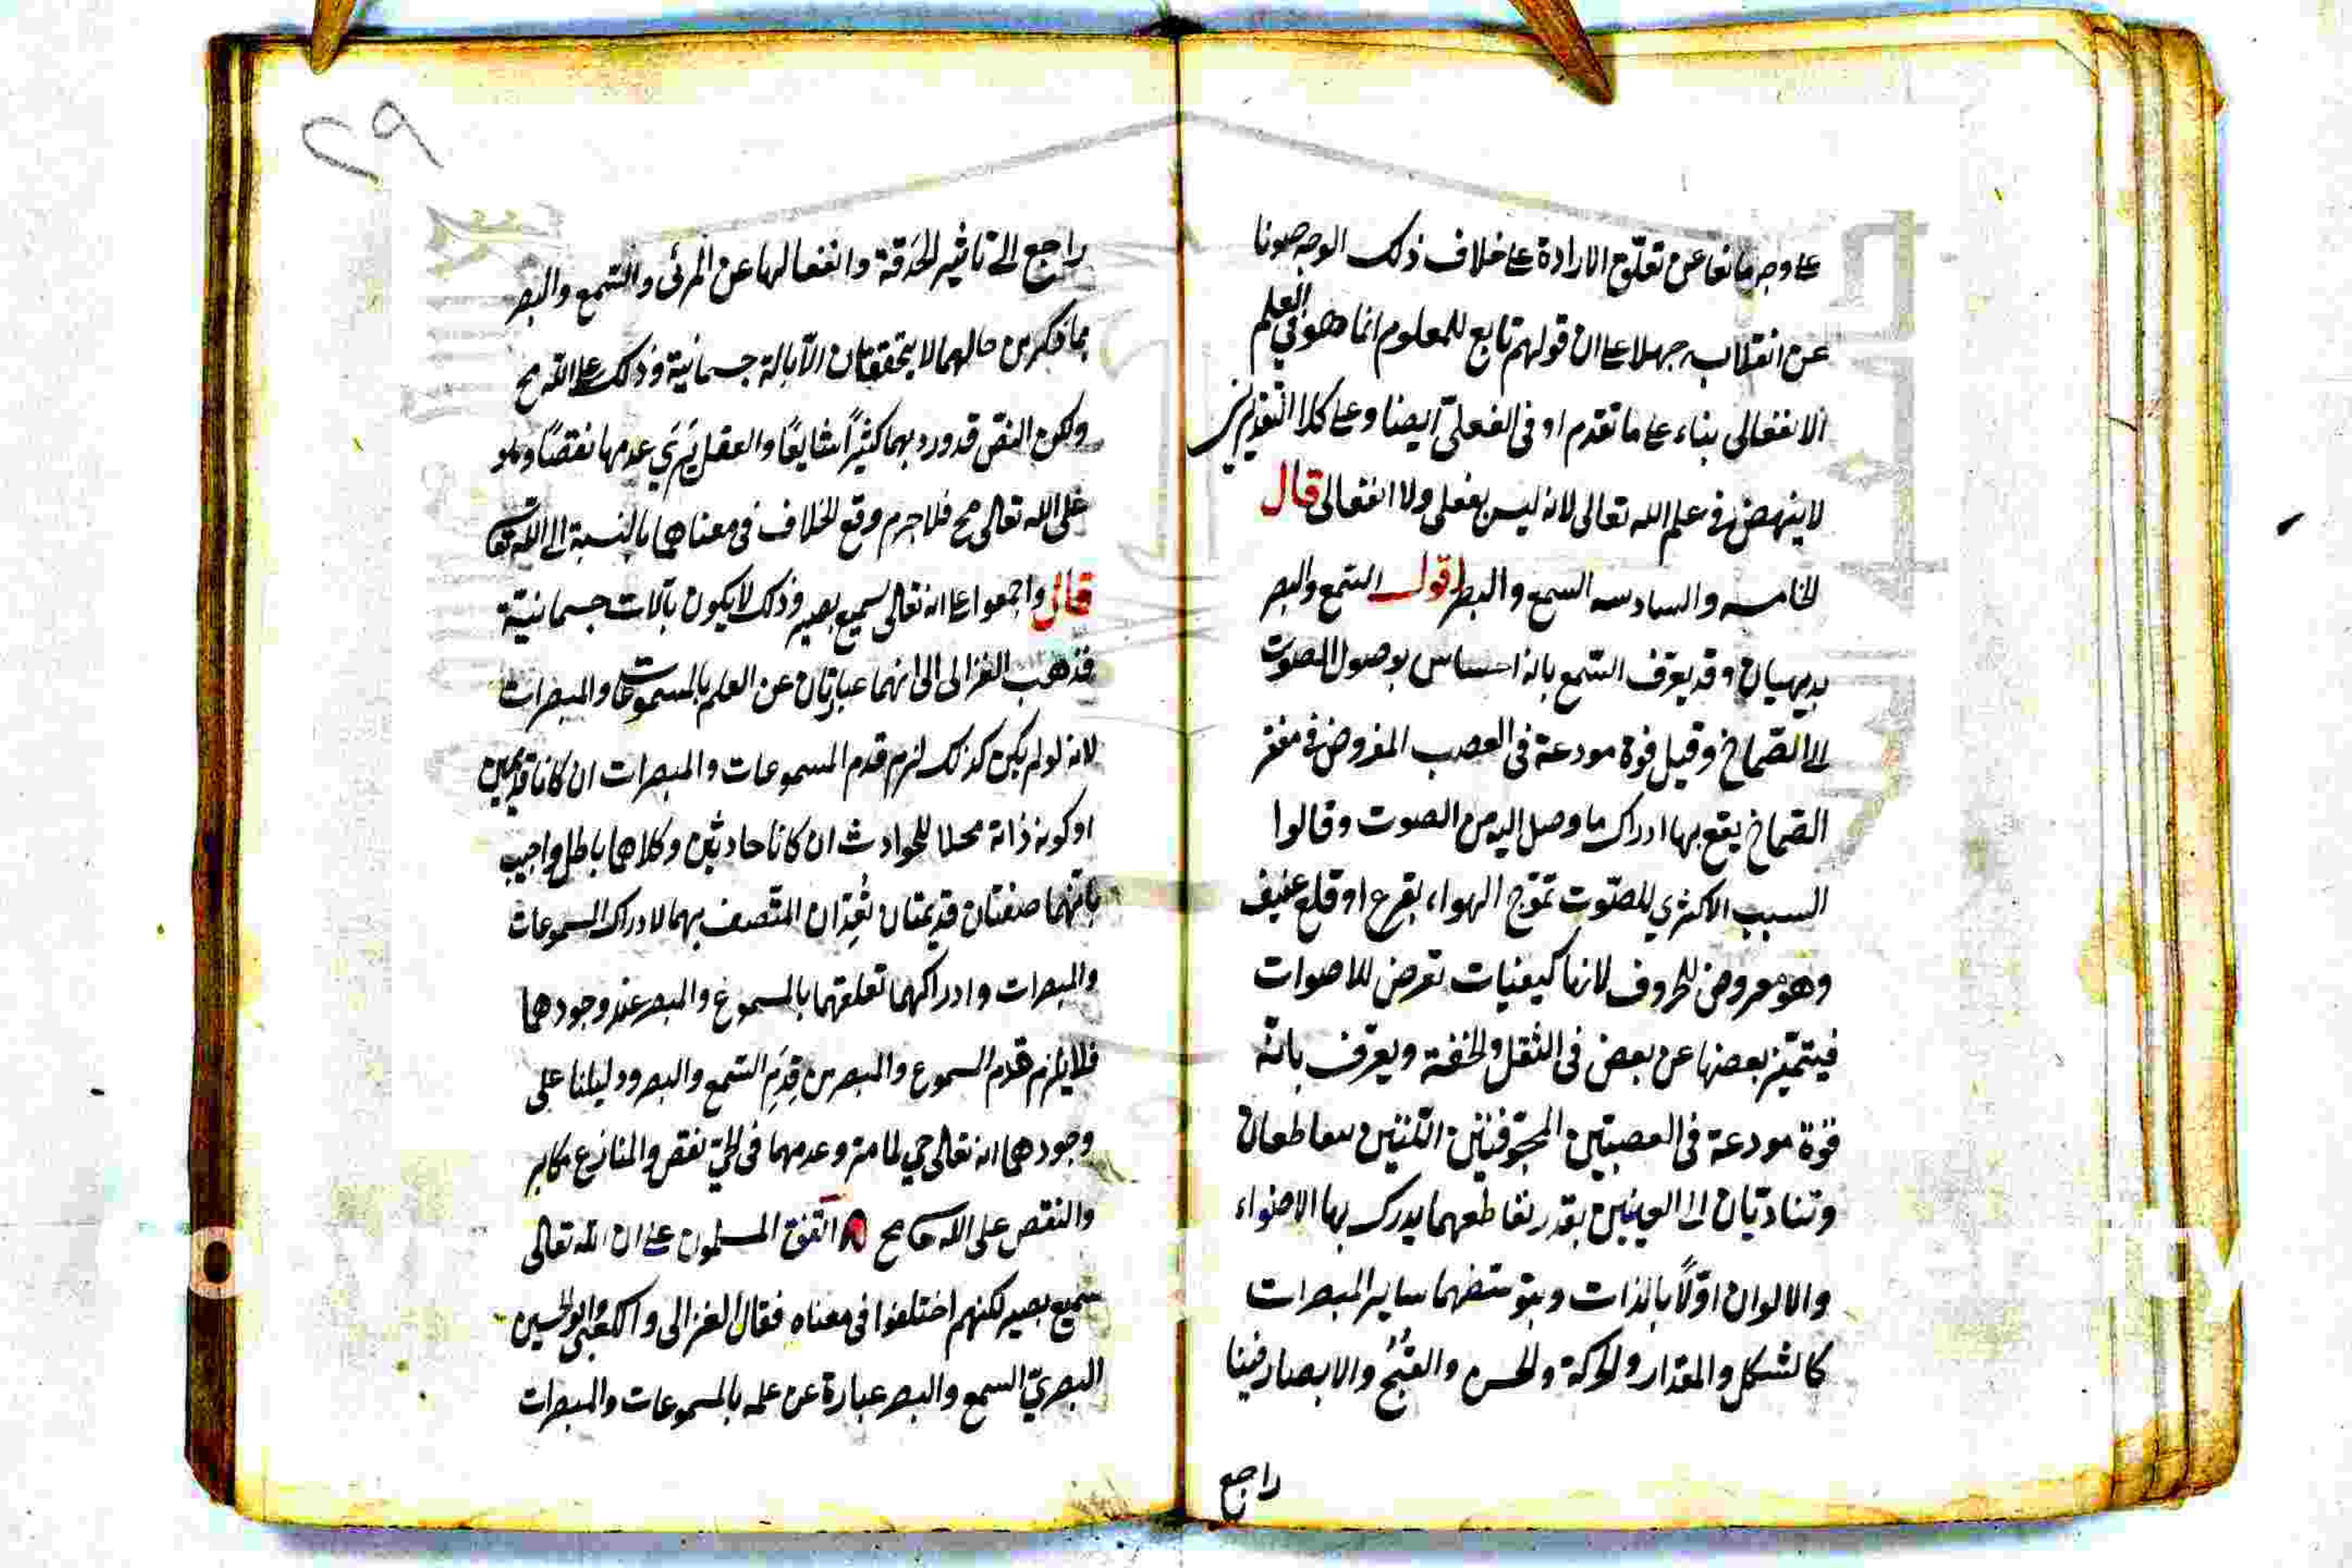 على وجه مانعا عن تعلق الارادة على خلاف ذلك الوجه صونا
عن انقلابه جهلا على ان قولهم تابع للمعلوم انما هو في العلم
الانفعالى بناء على ما تقدم او فى الفعلى ايضا وعلى كلا التقديرين
لا ينهض فى علم الله تعالى لانه ليس بفعلى ولا انفعالى قال
الخامسه والسادسه السمع والبصر اقول السّمع والبصر
بديهيان وقد يعرّف السّمع بانه احساس بوصول الصوت
الى الصّماخ وقيل قوة مودعة فى العصب المفروض فى مقعر
الصّماخ يقع بها ادراك ما وصل اليه من الصوت وقالوا
السبب الاكثري للصّوت تموّج الهواء بقرع او قلع عنيف
وهو معروض للحروف لانها كيفيات تعرض للاصوات
فيتميّز بعضها عن بعض فى الثقل والخفة ويعرّف بانّه
قوّة مودعة فى العصبتين المجوّفتين اللّتين يتقاطعان
وتتادّيان الى العينين بعد تقاطعهما يدرك بها الاضواء
والالوان اوّلًا بالذات وبتوسّطهما ساير المبصرات
كالشكل والمقدار والحركة والحسن والقُبْح والابصار فينا
راجع
٢٩
راجع الى تاثير الحَدَقة وانفعالها عن المرئى والسّمع والبصر
بما ذكر من حالهما لا يتحققان الّا بالة جسمانيّة وذلك على الله مح
ولكون النقص قد ورد بهما كثيرًا شايعًا والعقل يَرَي عدمها نقصًا وهو
على الله تعالى مح فلا جرم وقع الخلاف فى معناهما بالنسبة الى الله تعا
قال واجمعوا على انه تعالى سميع بصير وذلك لا يكون بآلات جسمانيّة
فذهب الغزالى الى انهما عبارتان عن العلم بالمسموعات والمبصرات
لانه لو لم يكن كذلك لزم قدم المسموعات والمبصرات ان كانا قديمين
او كونه ذاته محلا للحوادث ان كانا حادثين وكلاهما باطل واجيب
بانّهما صفتان قديمتان تُعِدّان المتّصف بهما لادراك المسموعات
والمبصرات وادراكهما تعلقهما بالمسموع والمبصر عند وجودهما
فلا يلزم قدم المسموع والمبصر من قِدَم السّمع والبصر ودليلنا على
وجودهما انه تعالى حي لما مرّ وعدمهما فى الحيّ نقص والمنازع مكابر
والنقص على الله مح اتّفق المسلمون على ان الله تعالى
سميع بصير لكنهم اختلفوا فى معناه فقال الغزالى والكعبى وابو الحسين
البصريّ السمع والبصر عبارة عن علمه بالمسموعات والمبصرات